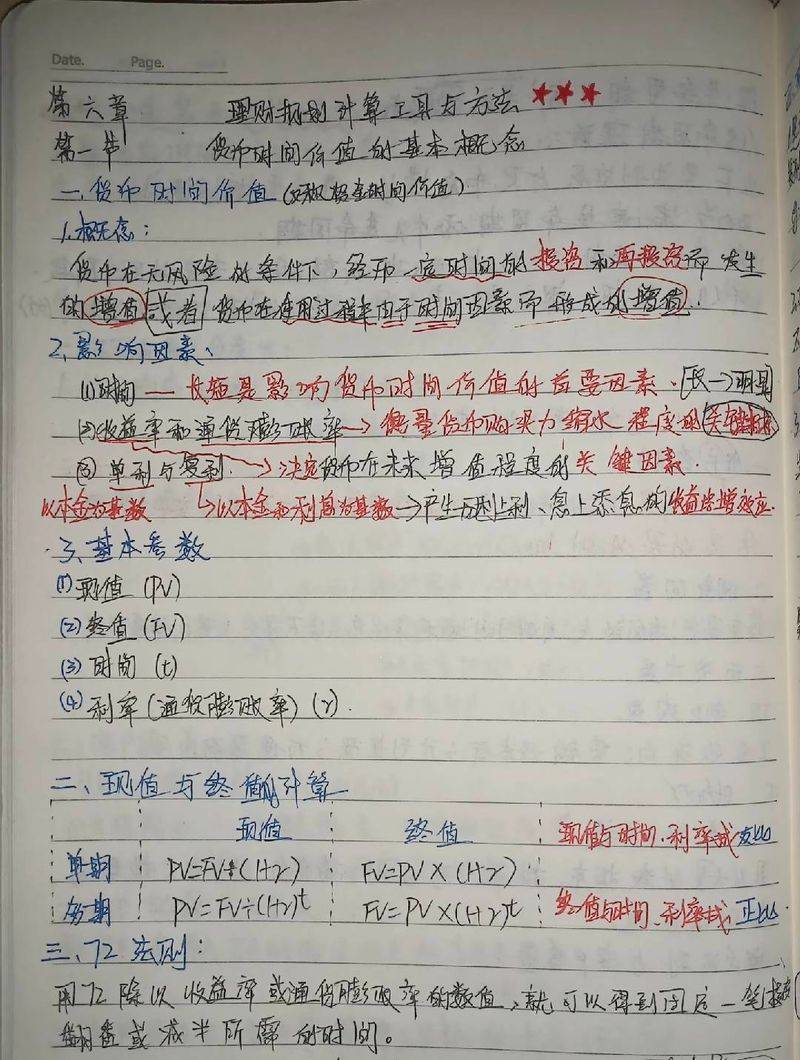 Date.    Page.
第六章    理财规划计算工具与方法 ★★★
第一节    货币时间价值的基本概念
一、货币时间价值 (又称资金时间价值)
1.概念:
货币在无风险的条件下,经历一定时间的投资和再投资而发生
的增值 或者 货币在使用过程中由于时间因素而形成的增值.
2.影响因素、
(1)时间 — 长短是影响货币时间价值的首要因素. [长→明显
(2)收益率和通货膨胀率→衡量货币购买力缩水程度的关键指标
(3)单利与复利. →决定货币在未来增值程度的关键因素.
以本金为基数 →以本金和利息为基数→产生利上利、息上添息的收益倍增效应.
3、基本参数
(1)现值 (PV)
(2)终值 (FV)
(3)时间 (t)
(4)利率 (通货膨胀率) (r).
二、现值与终值的计算
现值    终值    现值与时间.利率成反比
单期    PV=FV÷(1+r)    FV=PV×(1+r)
多期    PV=FV÷(1+r)^t    FV=PV×(1+r)^t    终值与时间.利率成正比.
三、72法则:
用72除以收益率或通货膨胀率的数值,就可以得到固定一笔投资
翻番或减半所需的时间。